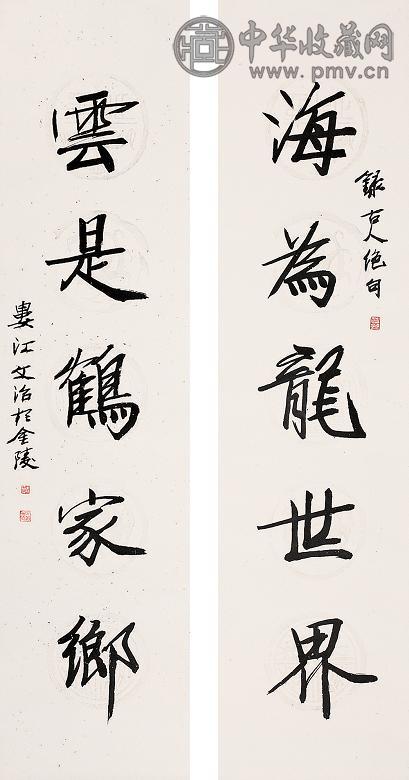 中华收藏网
www.pmv.cn
錄古人絶句
海為龍世界
雲是鶴家鄉
婁江文治於金陵